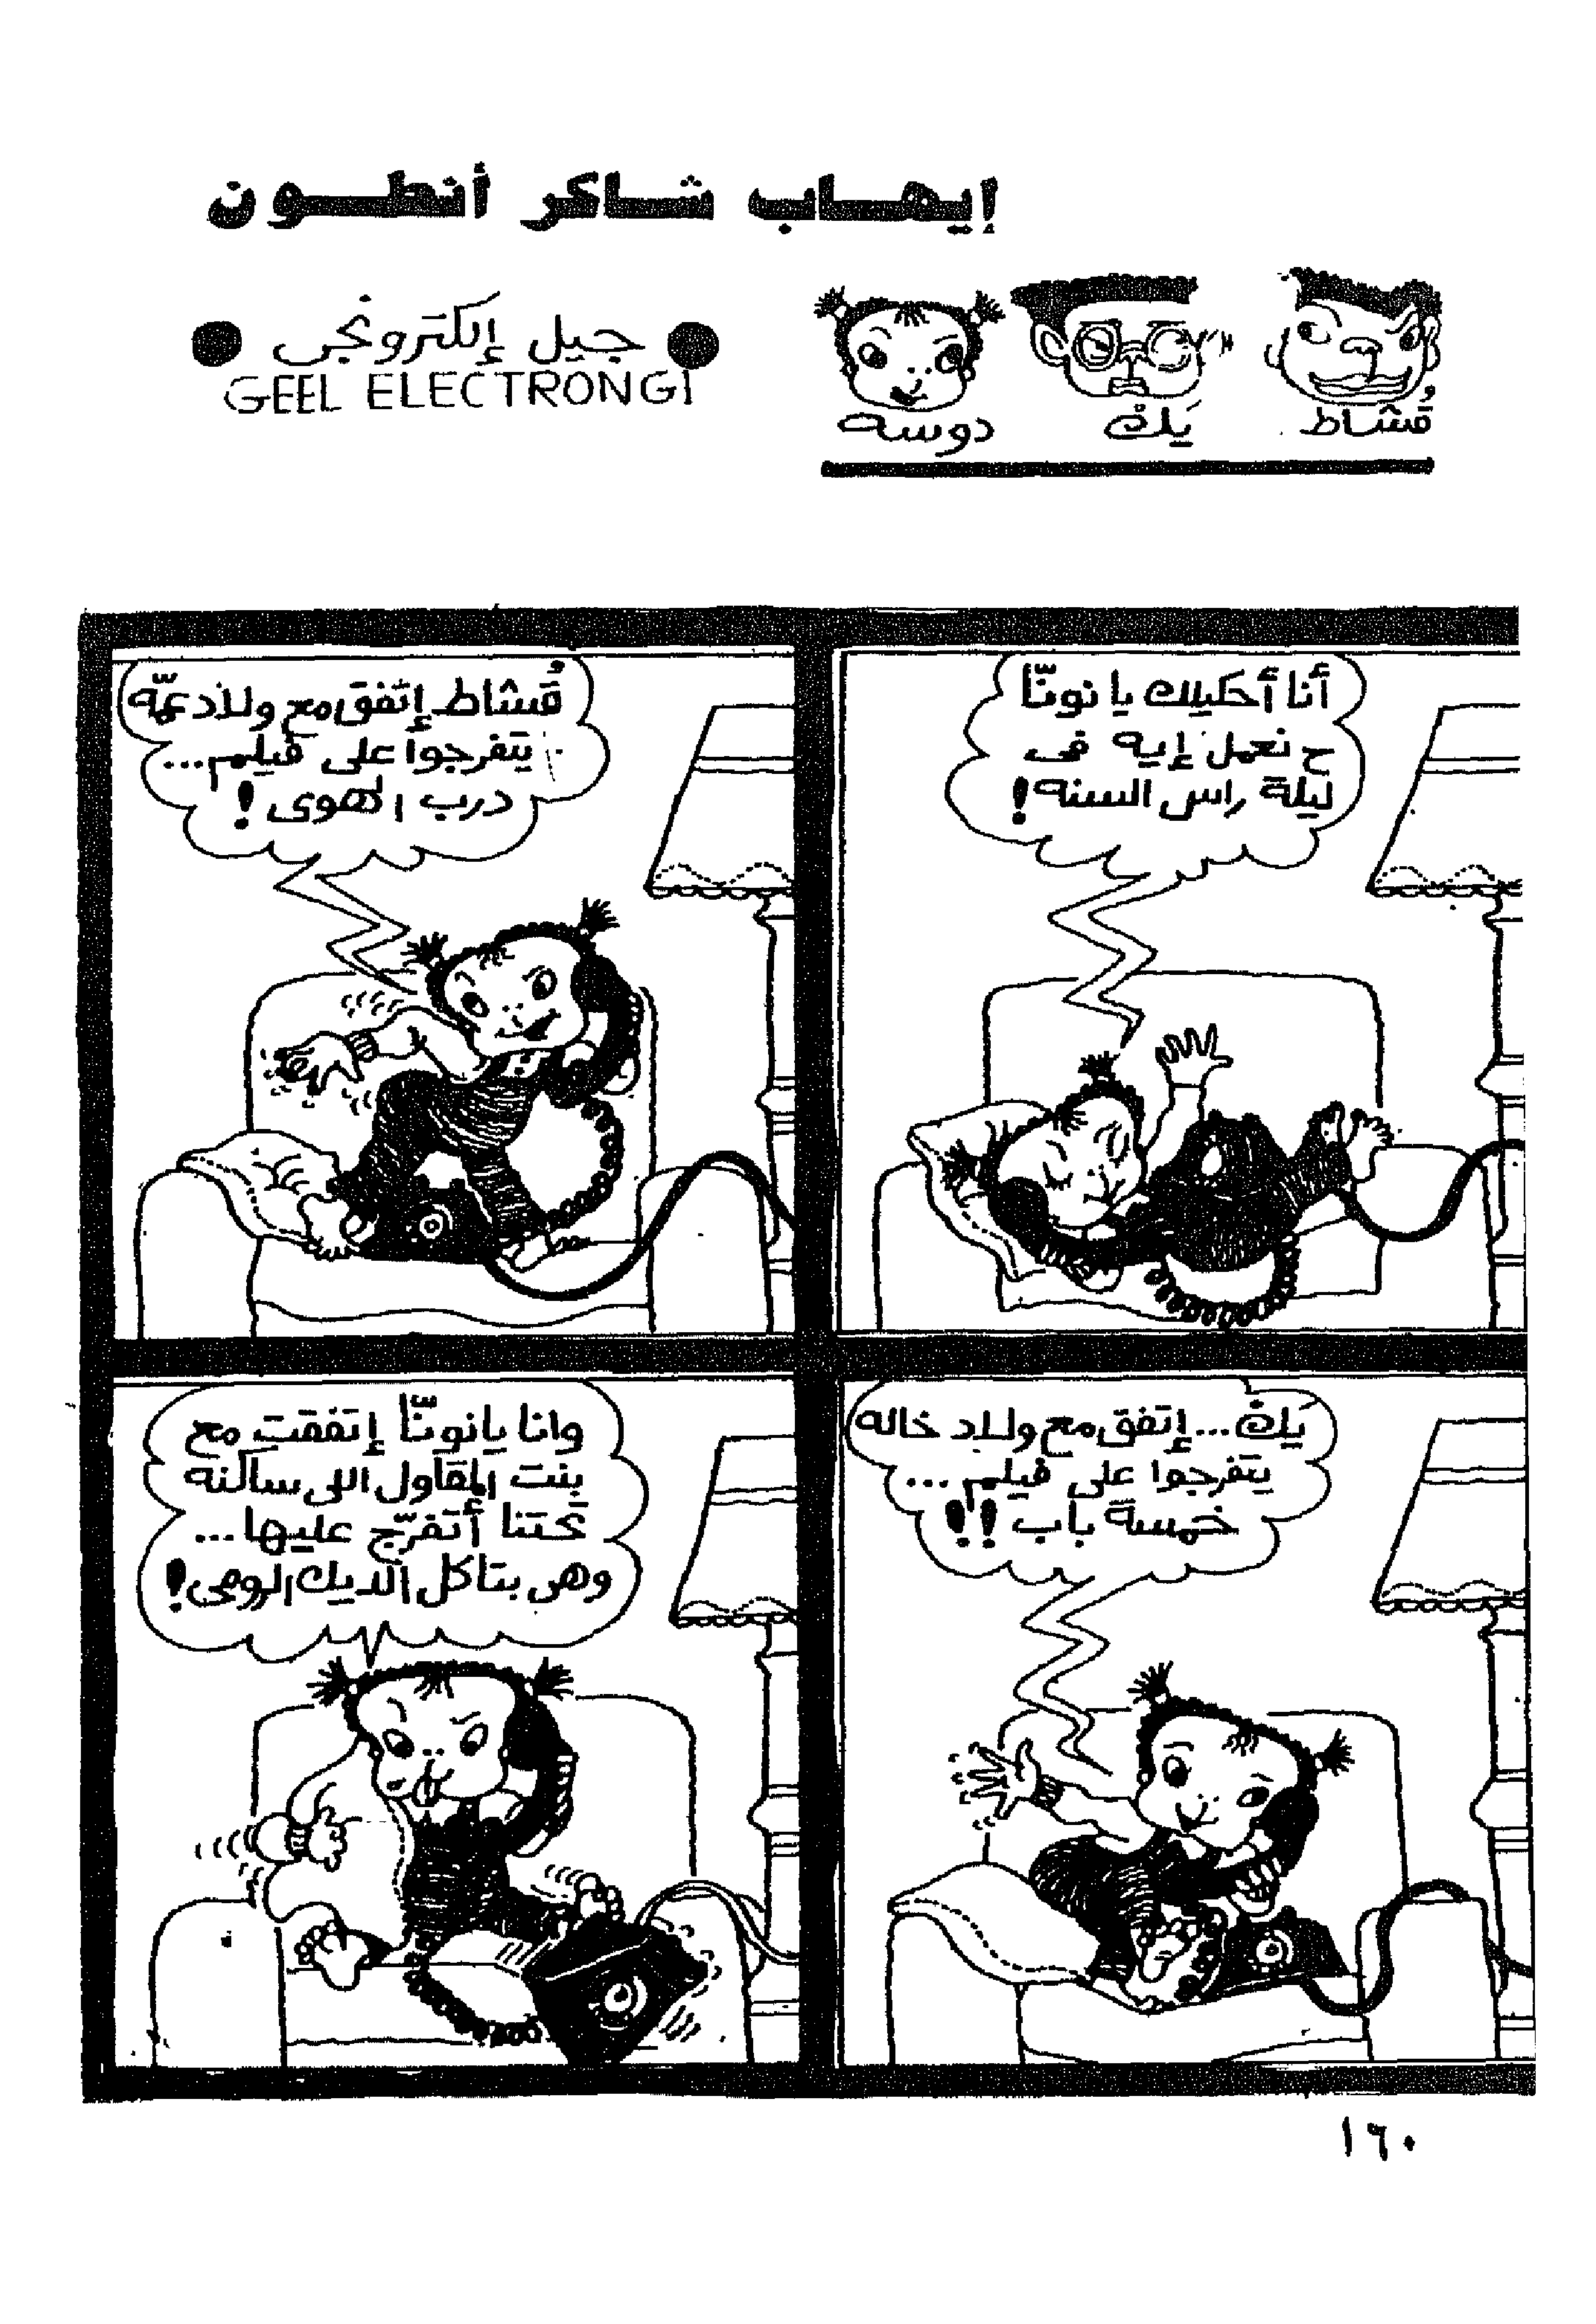 إيهاب شاكر أنطون
جيل إلكترونجى
GEEL ELECTRONGI
قُشاط
يَك
دوسه
أنا أحكيلك يا نونّا
ح نعمل إيه فى
ليلة راس السنه!
قُشاط إتفق مع ولاد عمّه
يتفرجوا على فيلم...
درب الهوى!
يَك... إتفق مع ولاد خاله
يتفرجوا على فيلم...
خمسة باب!!
وانا يا نونّا إتفقت مع
بنت المقاول اللى ساكنه
تحتنا أتفرّج عليها...
وهى بتاكل الديك الرومى!
١٦٠